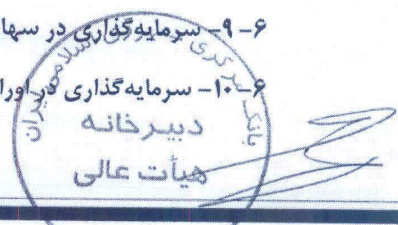 ۶-۹- سرمایه‌گذاری در سها
۶-۱۰- سرمایه‌گذاری در اورا
بانک مرکزی جمهوری اسلامی ایران
دبیرخانه
هیأت عالی